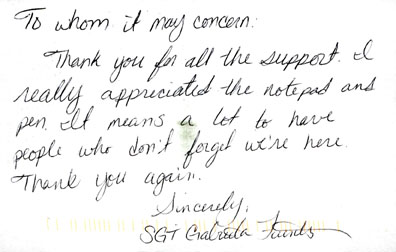 To whom it may concern:
Thank you for all the support. I
really appreciated the notepad and
pen. It means a lot to have
people who don't forget we're here.
Thank you again.
Sincerely,
SGT